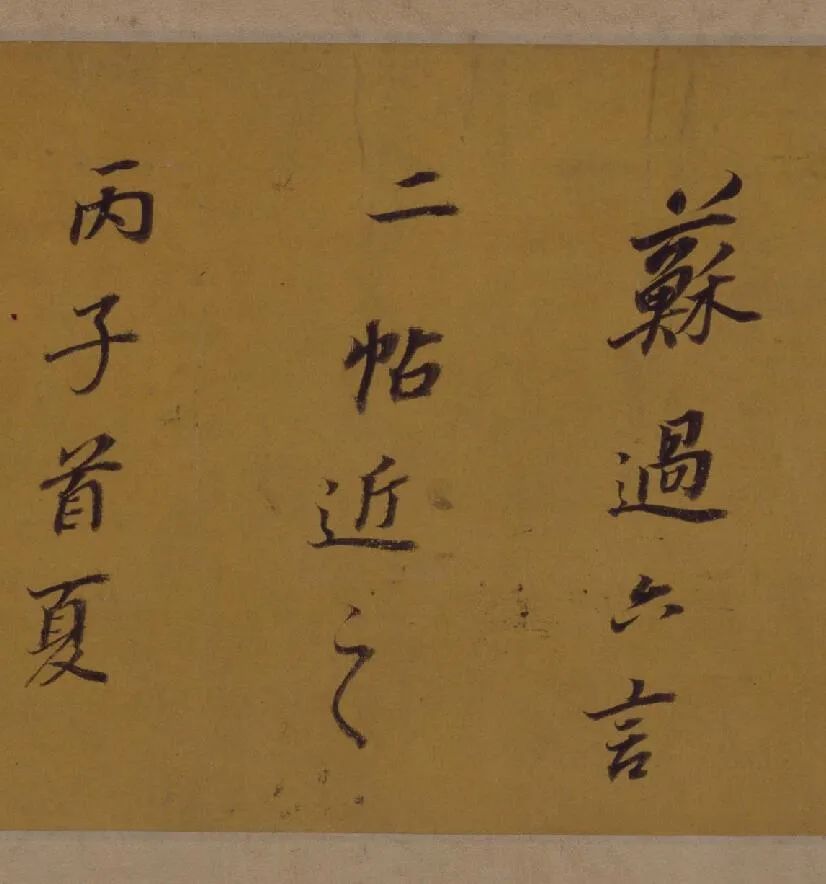 蘇過六言
二帖近之
丙子首夏